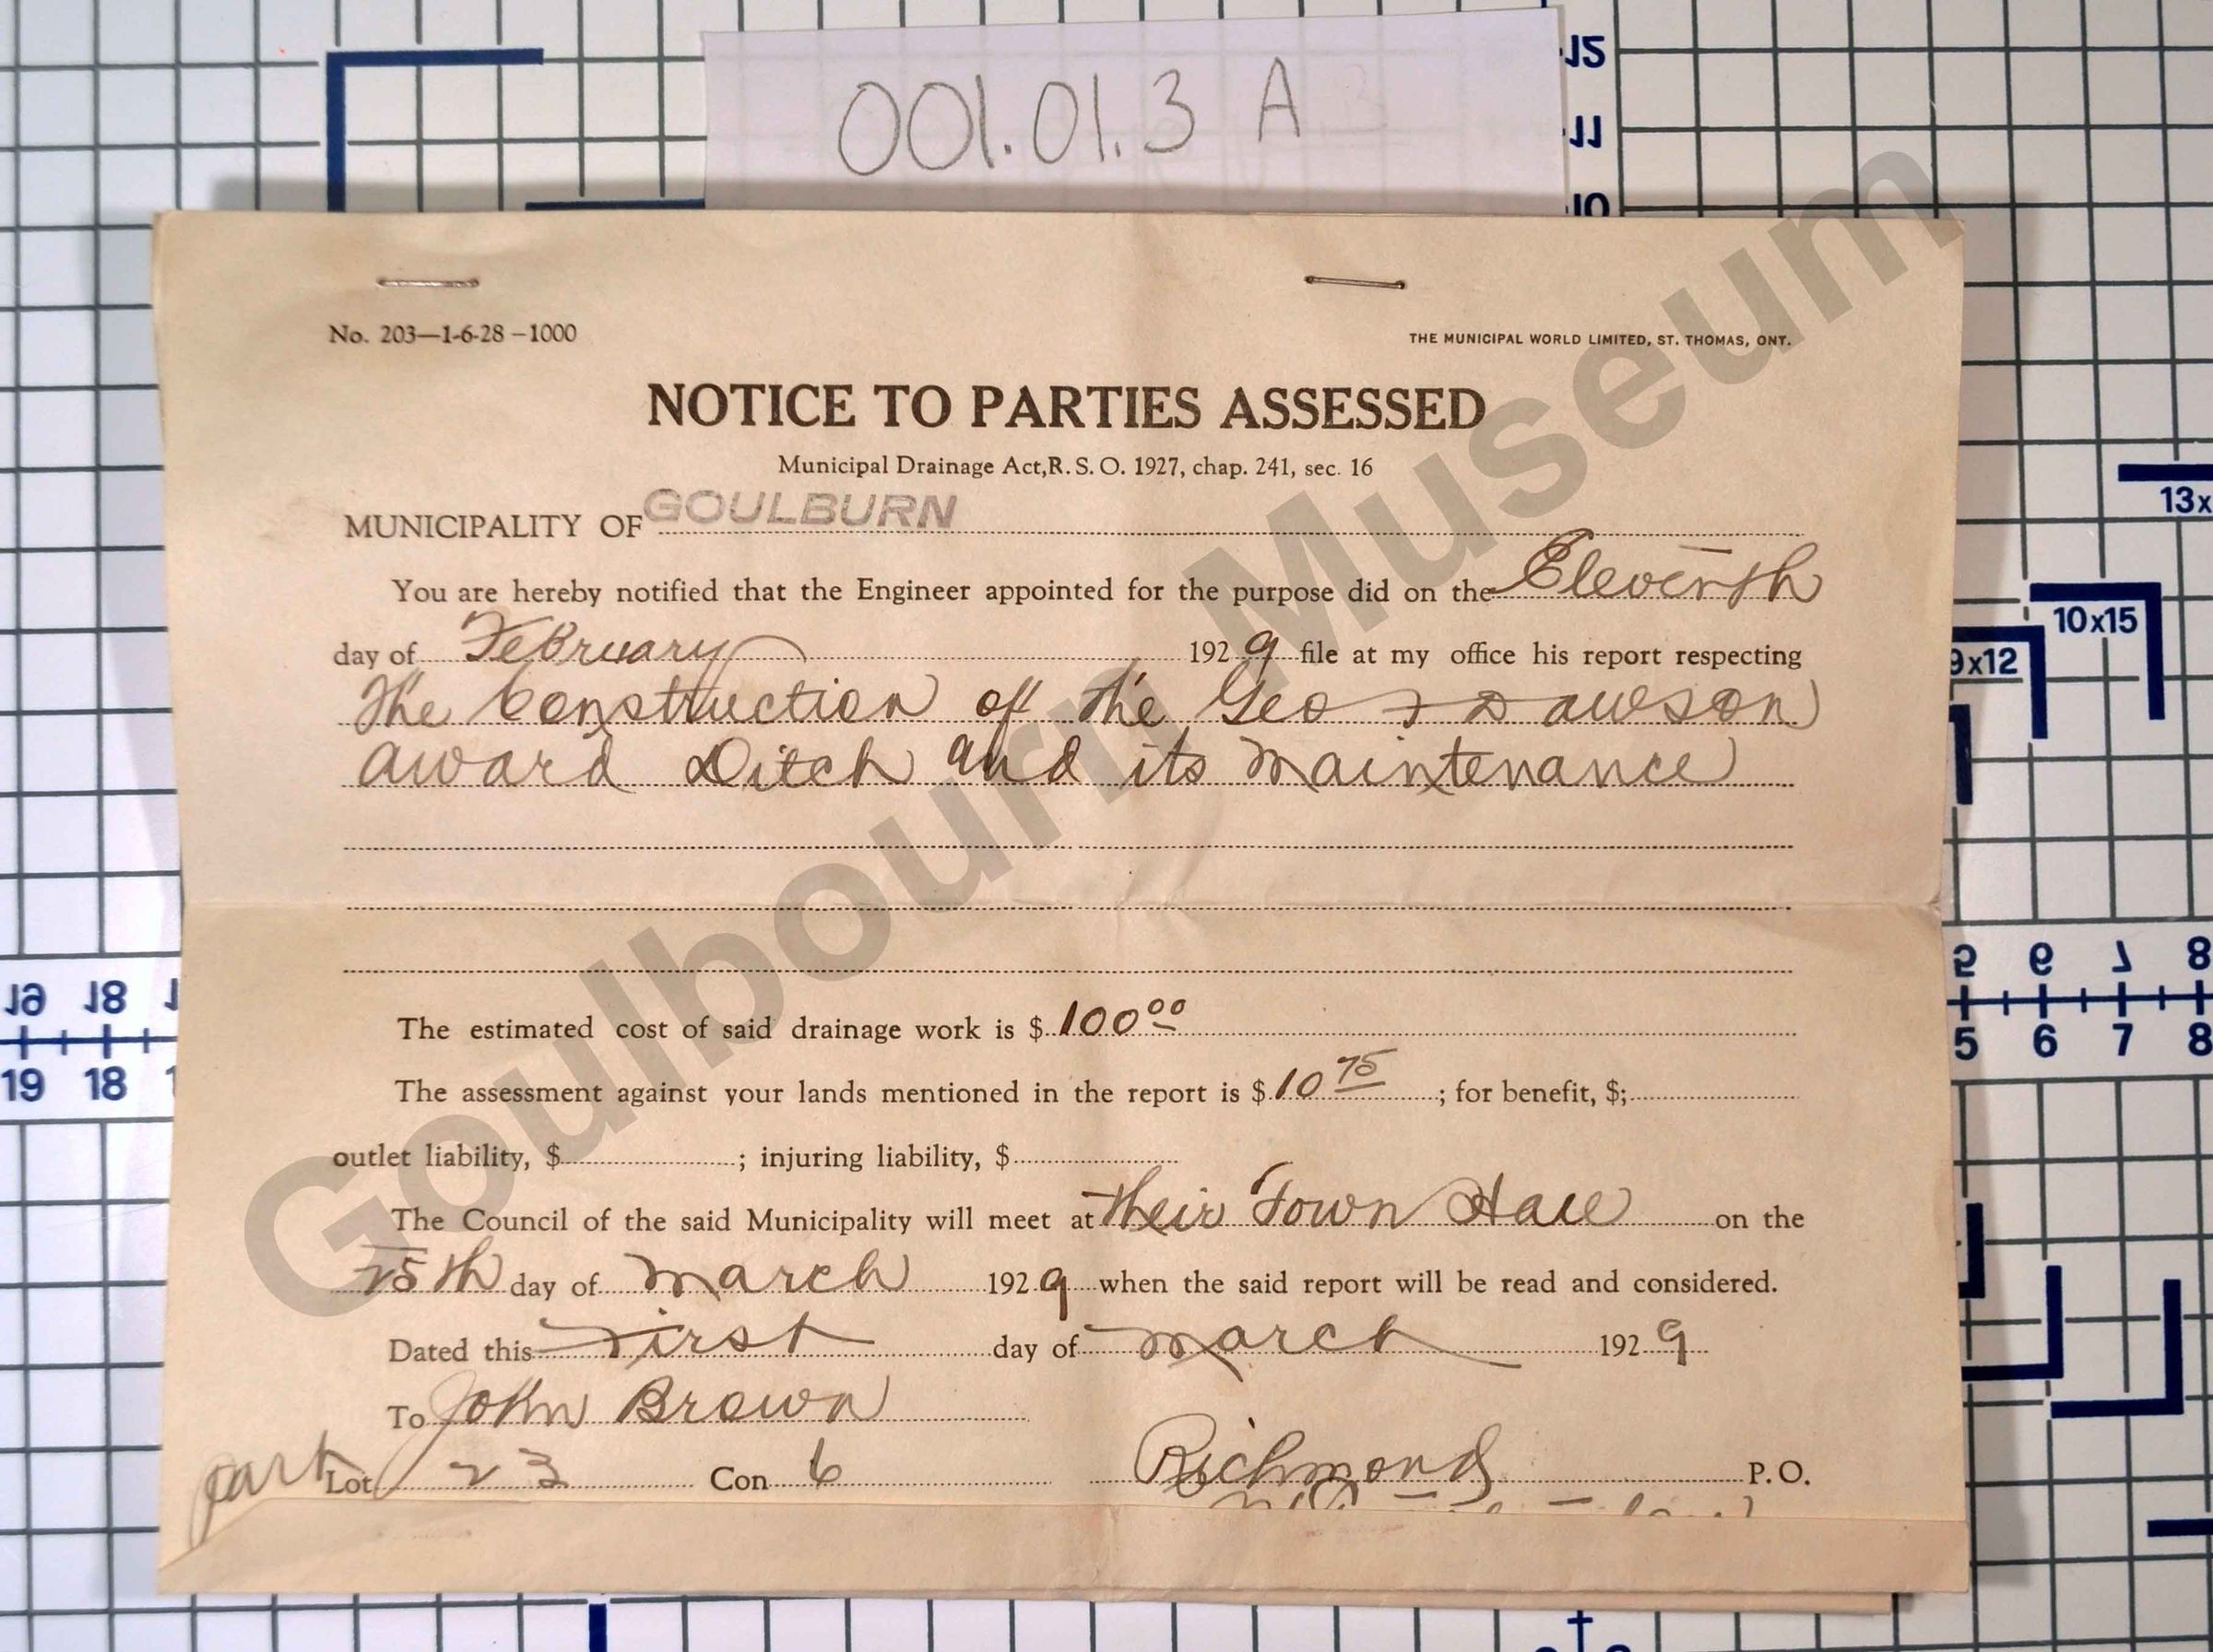 001.01.3 A
12
11
10
No. 203—1-6-28—1000
THE MUNICIPAL WORLD LIMITED, ST. THOMAS, ONT.
NOTICE TO PARTIES ASSESSED
Municipal Drainage Act, R. S. O. 1927, chap. 241, sec. 16
MUNICIPALITY OF GOULBURN
You are hereby notified that the Engineer appointed for the purpose did on the Eleventh
day of February 1929 file at my office his report respecting
The Construction of the Geo Dawson
award Ditch and its maintenance
The estimated cost of said drainage work is $ 100 00
The assessment against your lands mentioned in the report is $ 10 75 ; for benefit, $;
outlet liability, $ ; injuring liability, $
The Council of the said Municipality will meet at their Town Hall on the
25th day of March 1929 when the said report will be read and considered.
Dated this First day of March 1929
To John Brown
part Lot 23 Con 6 Richmond P. O.
Goulbourn Museum
13x
10x15
9x12
19 18
19 18
5 6 7 8
5 6 7 8